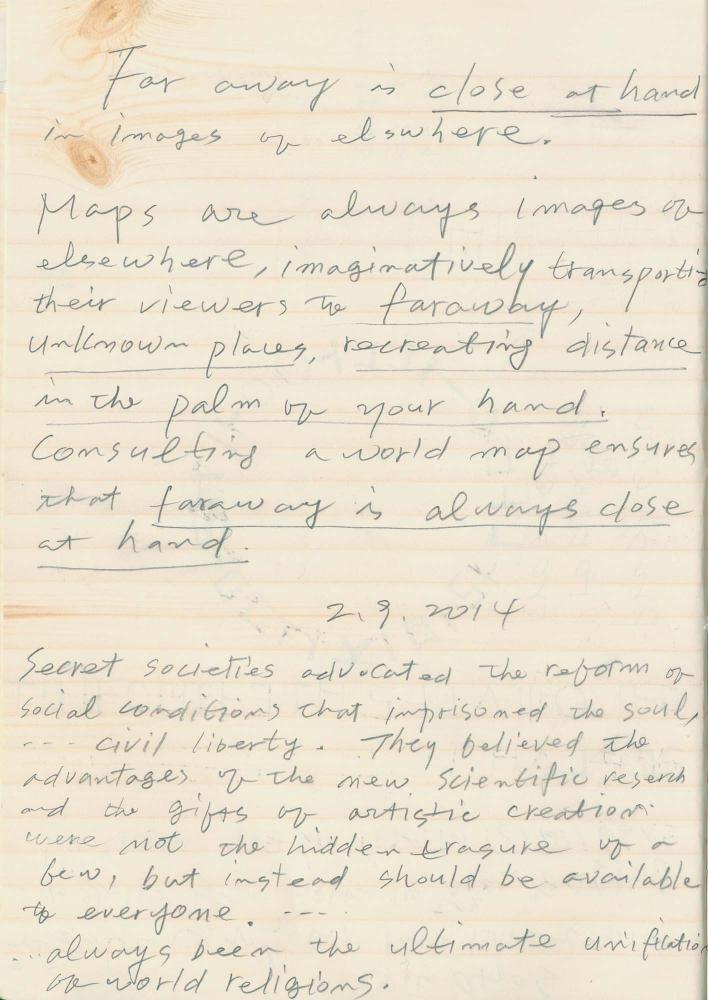 Far away is close at hand
in images of elswhere.
Maps are always images of
elsewhere, imaginatively transporti
their viewers to faraway,
unknown places, recreating distance
in the palm of your hand.
Consulting a world map ensures
that faraway is always close
at hand.
2.9.2014
Secret societies advocated the reform of
social conditions that imprisoned the soul,
--- civil liberty. They believed the
advantages of the new scientific reserch
and the gifts of artistic creation
were not the hidden trasure of a
few, but instead should be available
to everyone. ---
...always been the ultimate unificatio
of world religions.